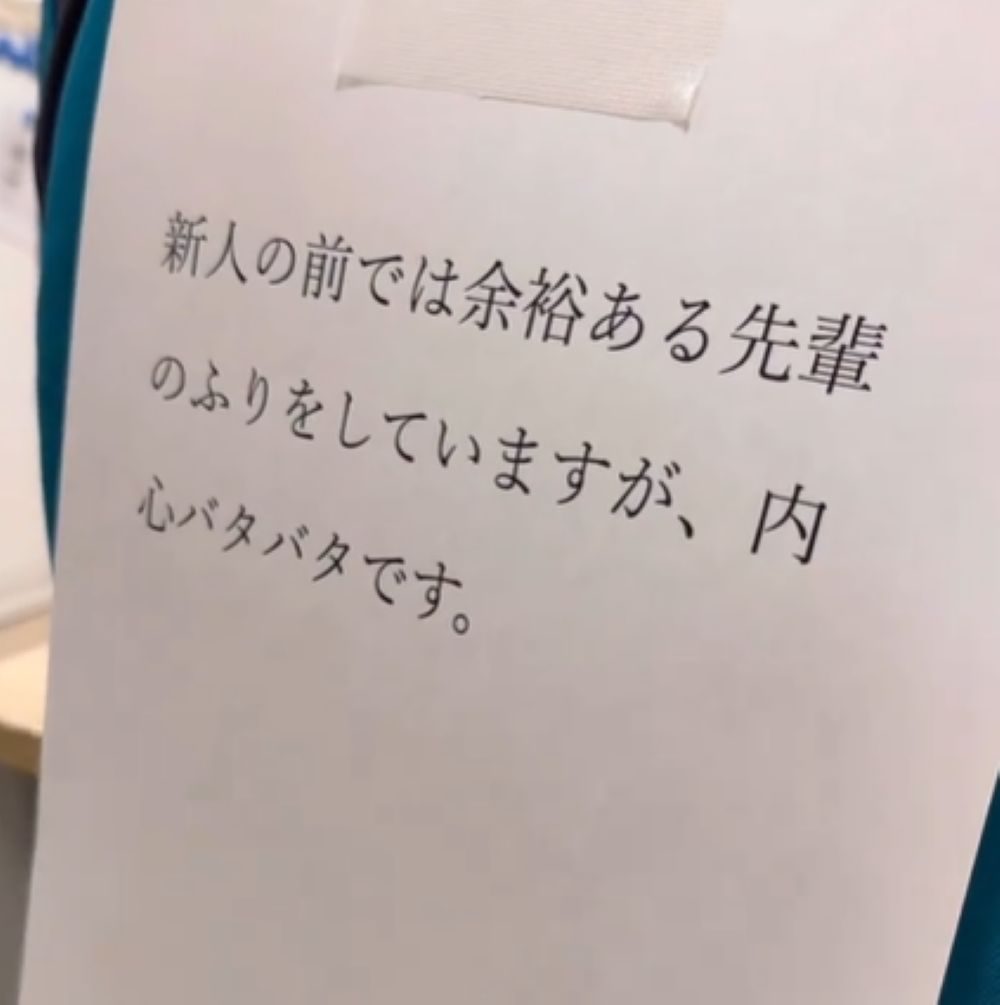 新人の前では余裕ある先輩
のふりをしていますが、内
心バタバタです。